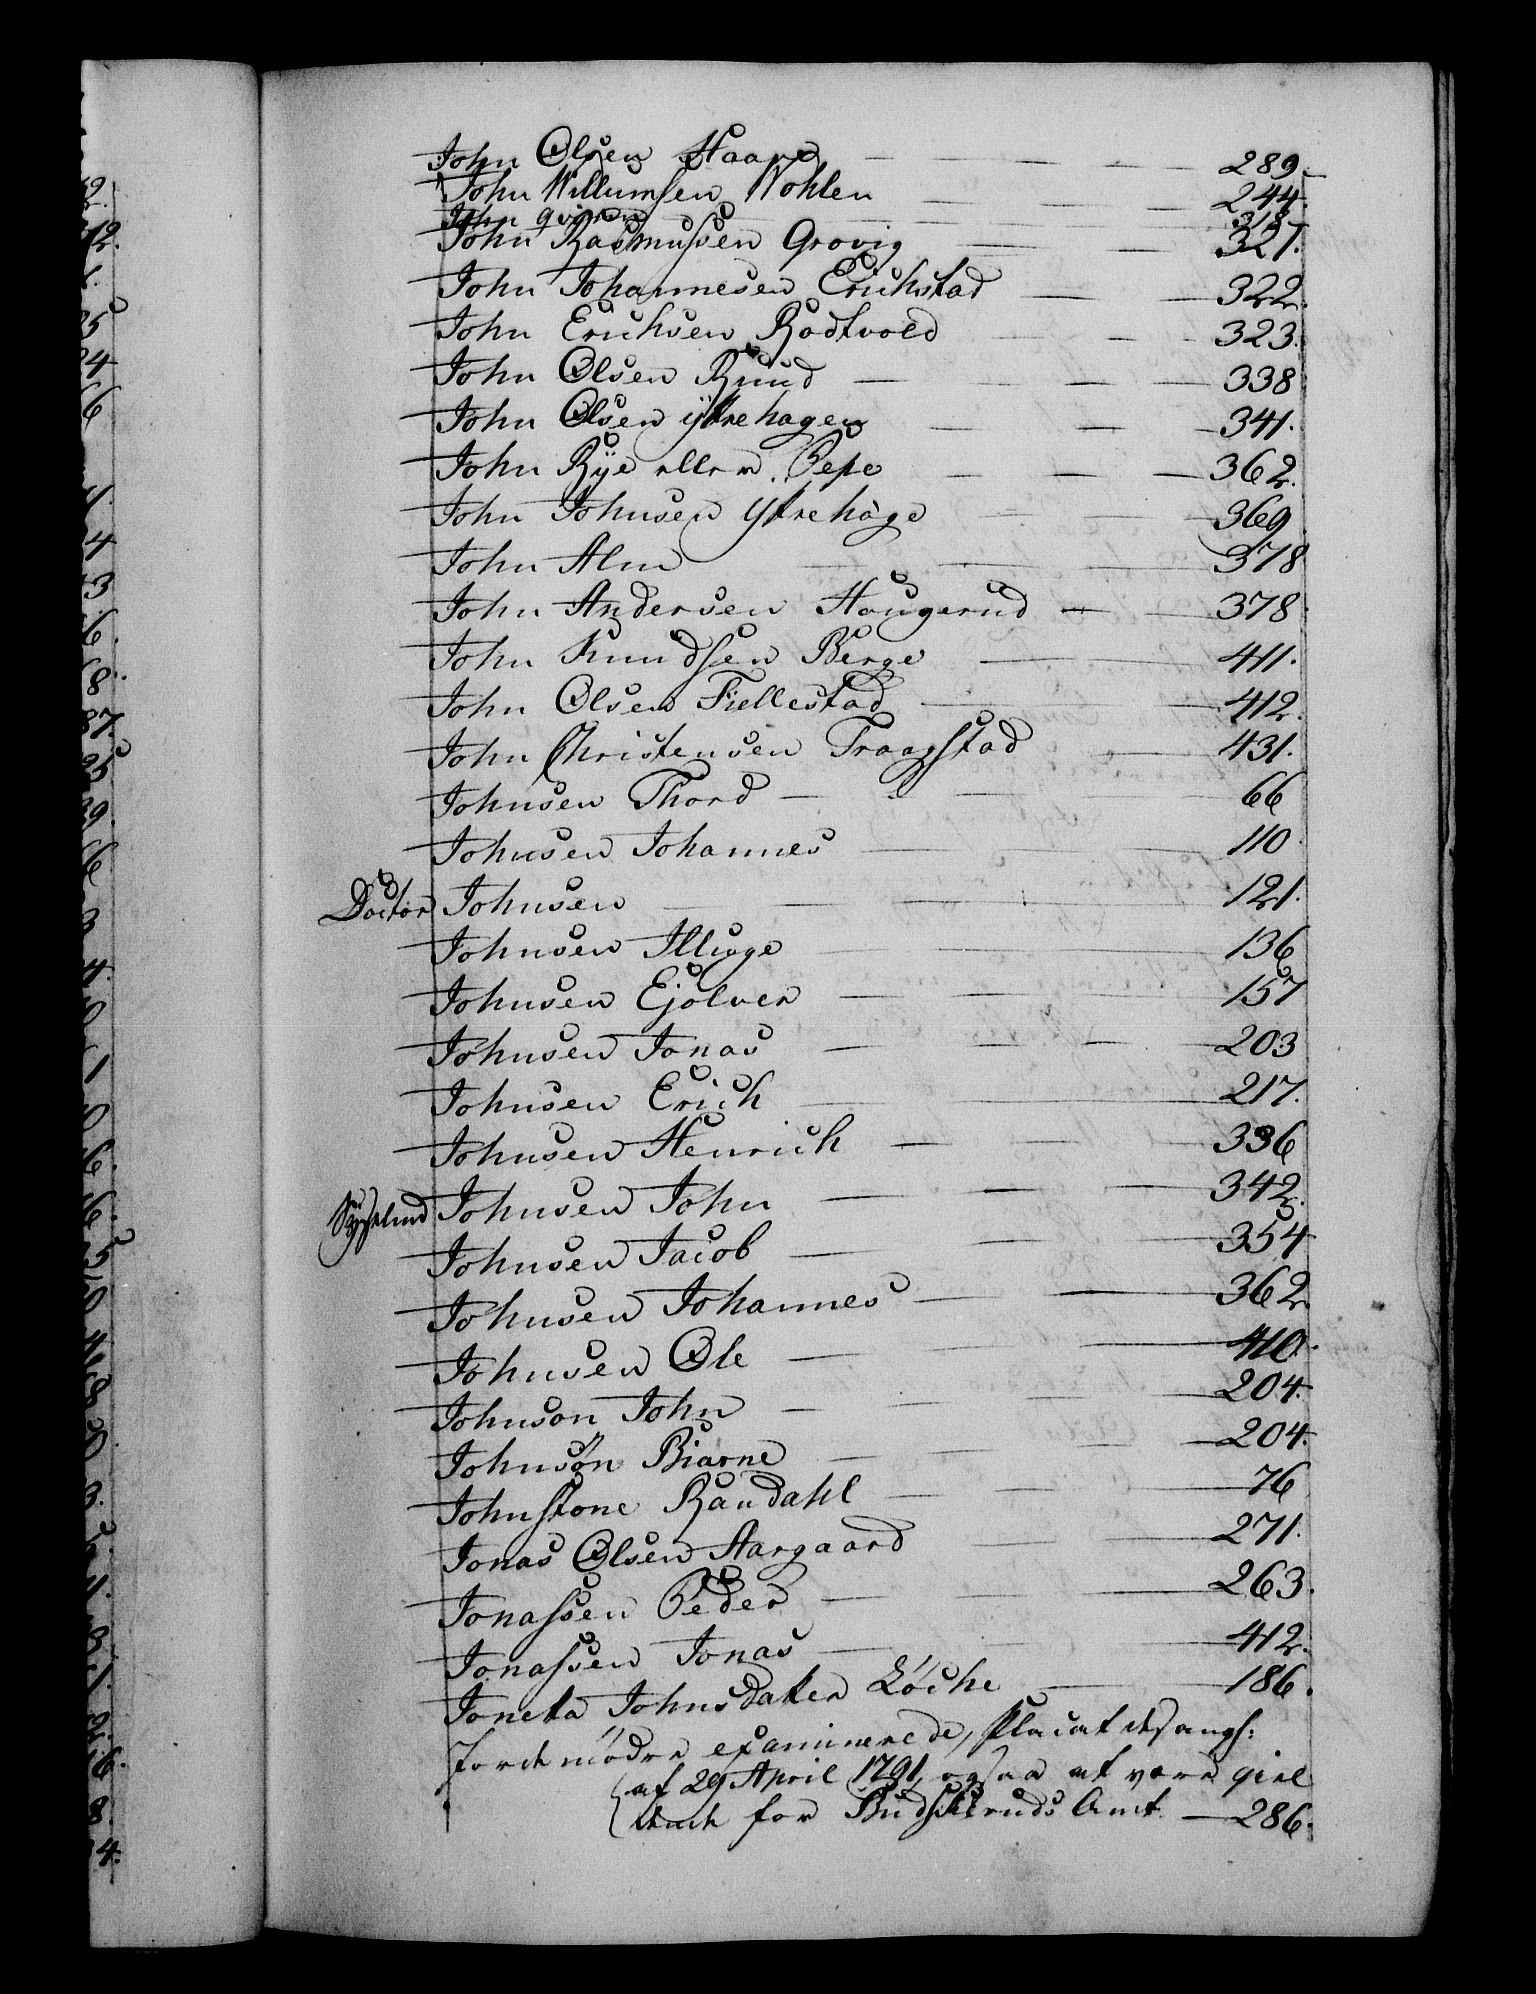 John Olsen Haave 289.
John Willumsen Wohlen 244.
John Qvisen 318.
John Rasmussen Grovig 327.
John Johannesen Erichstad 322.
John Erichsen Rodtvold 323.
John Olsen Ruud 338
John Olsen ytrehagen 341.
John Rye eller Pepe 362.
John Johnsen ytrehage 369.
John Alm 378
John Andersen Hougerud 378
John Knudsen Berge 411.
John Olsen Fiellestad 412.
John Christensen Traagstad 431.
Johnsen Thord 66
Johnsen Johannes 110
Doctor Johnsen 121.
Johnsen Illuge 136
Johnsen Ejolver 157
Johnsen Jonas 203
Johnsen Erich 217.
Johnsen Henrich 336
Sysselmd Johnsen John 342.
Johnsen Jacob 354
Johnsen Johannes 362.
Johnsen Ole 410.
Johnson John 204.
Johnsøn Biarne 204.
Johnstone Randahl 76
Jonas Olsen Aargaard 271.
Jonassen Peder 263.
Jonassen Jonas 412.
Joneta Johnsdatter Løche 186.
Jordemødre examinerede, Placat desang:
af 29 April 1791, ogsaa at være giel
dende for Budskeruds Amt 286.